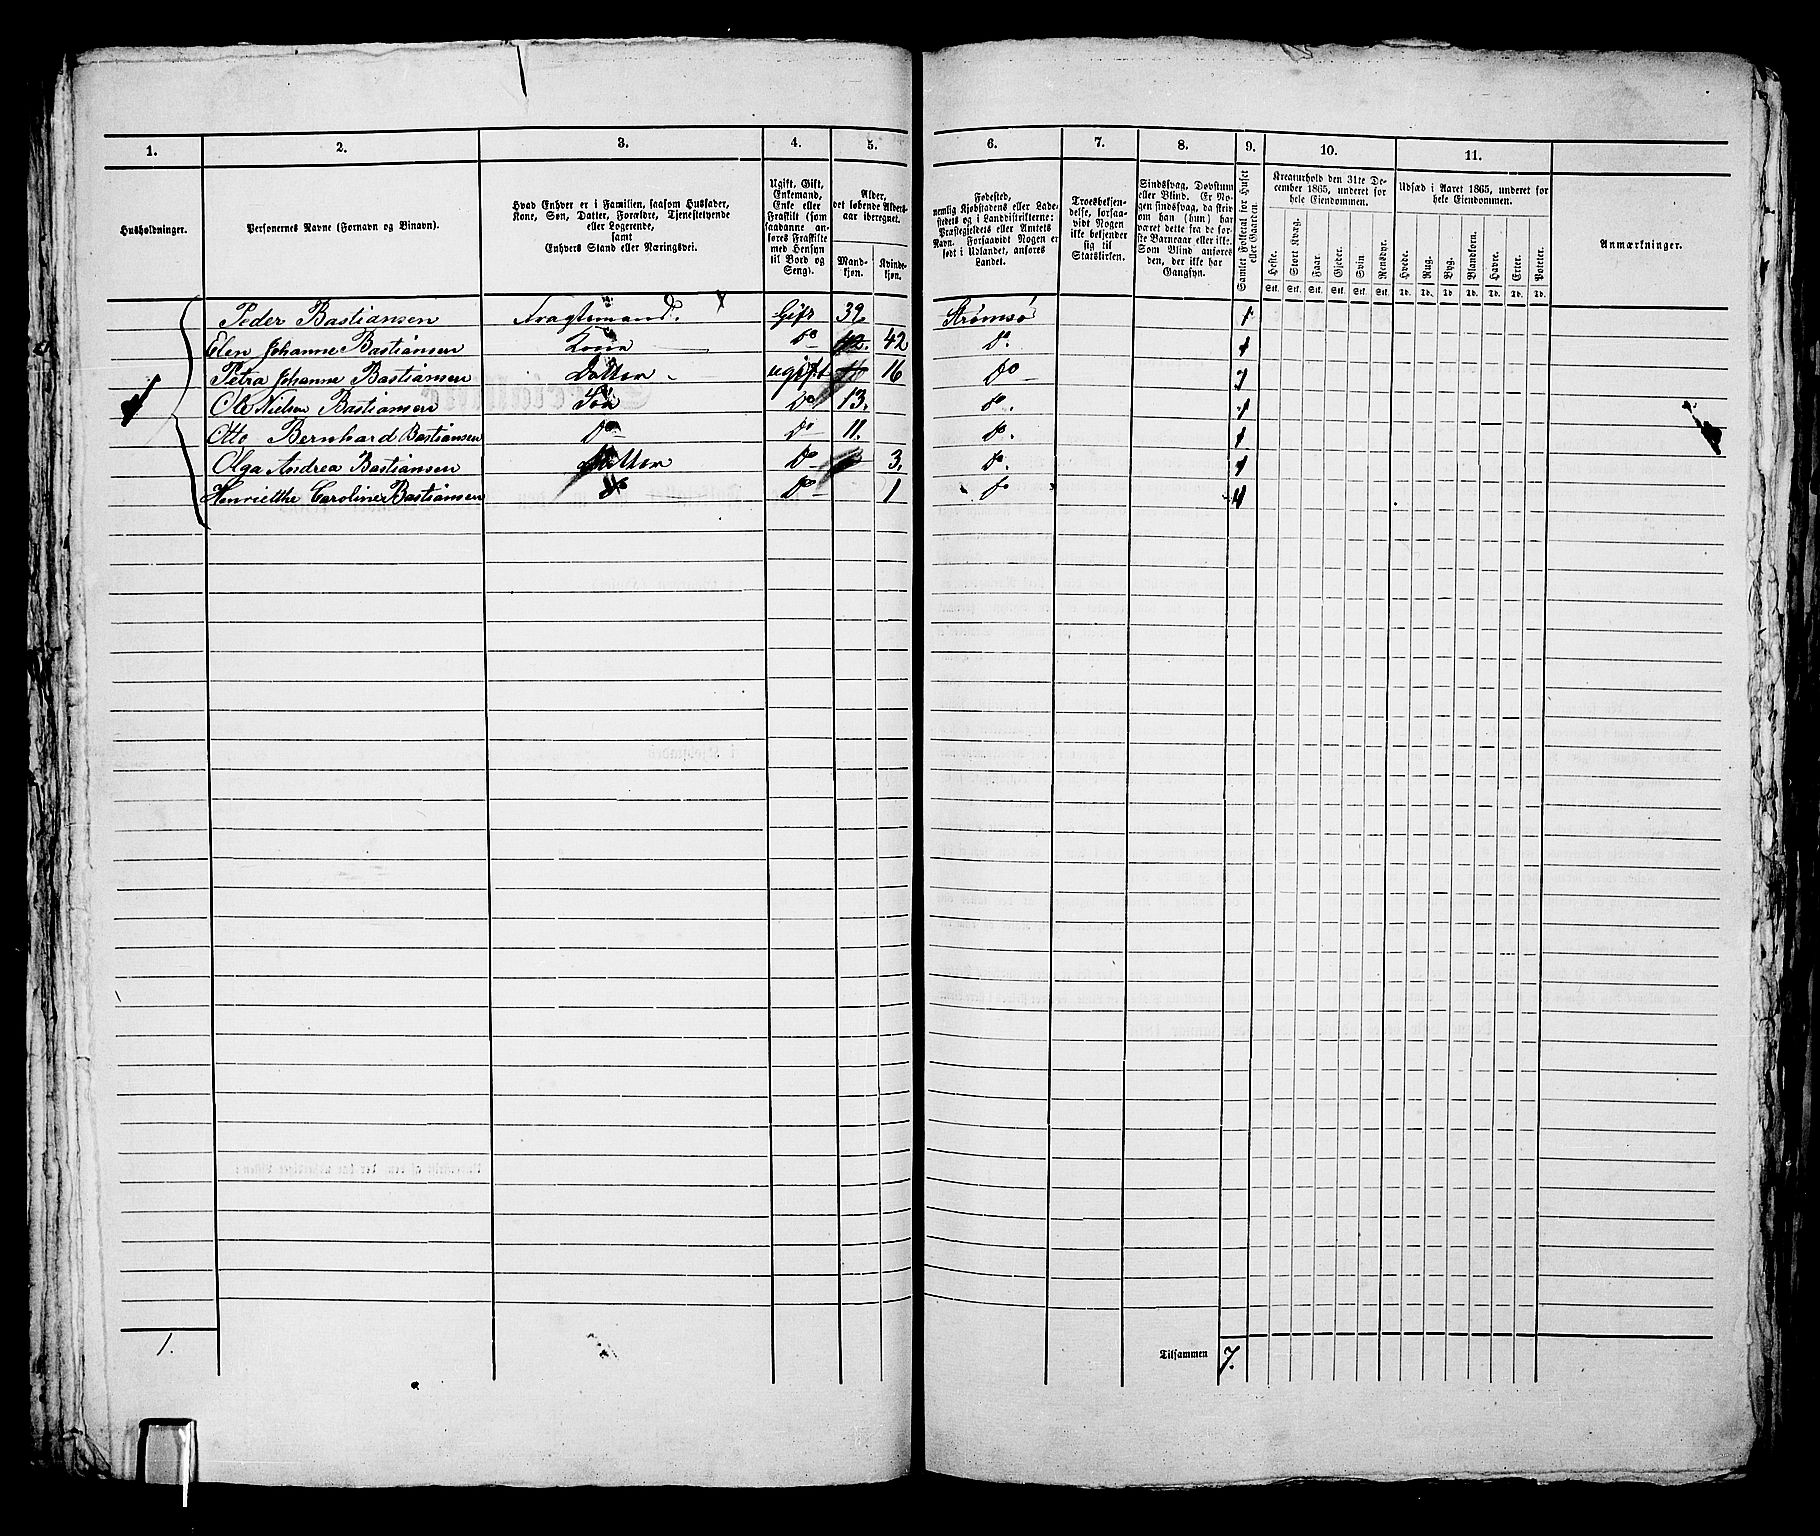 1. 2. 3. 4. 5. 6. 7. 8. 9. 10. 11.
Husholdninger.
Personernes Navne (Fornavn og Binavn).
Hvad Enhver er i Familien, saasom Husfader,
Kone, Søn, Datter, Forældre, Tjenestetyende
eller Logerende,
samt
Enhvers Stand eller Næringsvei.
Ugift, Gift,
Enkemand,
Enke eller
Fraskilt (som
saadanne an-
føres Fraskilte
med Hensyn
til Bord og
Seng).
Alder,
det løbende Alders-
aar iberegnet.
Mand-
kjøn.
Kvinde-
kjøn.
Fødested,
nemlig Kjøbstadens eller Lade-
stedets og i Landdistrikterne:
Præstegjeldets eller Amtets
Navn. Forsaavidt Nogen er
født i Udlandet, anføres
Landet.
Troesbekjen-
delse, forsaa-
vidt Nogen
ikke bekjender
sig til
Statskirken.
Sindssvag, Døvstum
eller Blind. Er No-
gen sindssvag, da skriv
om han (hun) har
været dette fra de før-
ste Barneaar eller ikke.
Som Blind anføres
den, der ikke har
Gangsyn.
Samlet Folketal for Huset
eller Gaarden.
Kreaturhold den 31te De-
cember 1865, underet for
hele Eiendommen.
Heste. Stort Kvæg. Faar. Gjeter. Svin Rensdyr.
Stk. Stk. Stk. Stk. Stk. Stk.
Udsæd i Aaret 1865, underet for
hele Eiendommen.
Hvede. Rug. Byg. Blandkorn. Havre. Erter. Poteter.
Td. Td. Td. Td. Td. Td. Td.
Anmærkninger.
Peder Bastiansen Fragtemand. Gift 39. Strømsø 1
Elen Johanne Bastiansen Kone Do 42 Do. 1
Petra Johanne Bastiansen Datter ugift 16 Do 1
1 Ole Nielsen Bastiansen Søn Do 13. Do. 1
Otto Bernhard Bastiansen Do Do 11. Do. 1
Olga Andrea Bastiansen Datter Do 3. Do. 1
Henriethe Caroline Bastiansen Do Do 1 Do 1
1. Tilsammen 7.